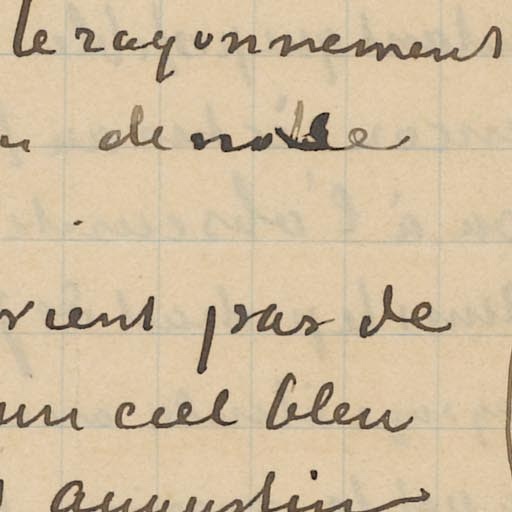 le rayonnement
de notre
vient pas de
un ciel bleu
augustin